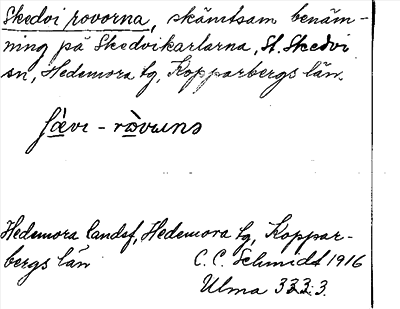 Skedvi rovorna, skämtsam benäm-
ning på Skedvikarlarna, St. Skedvi
sn, Hedemora tg, Kopparbergs län.
ʃæ̀vı - rɷ̀vɯnə
Hedemora landsf, Hedemora tg, Koppar-
bergs län C. C. Schmidt 1916
Ulma 333:3.